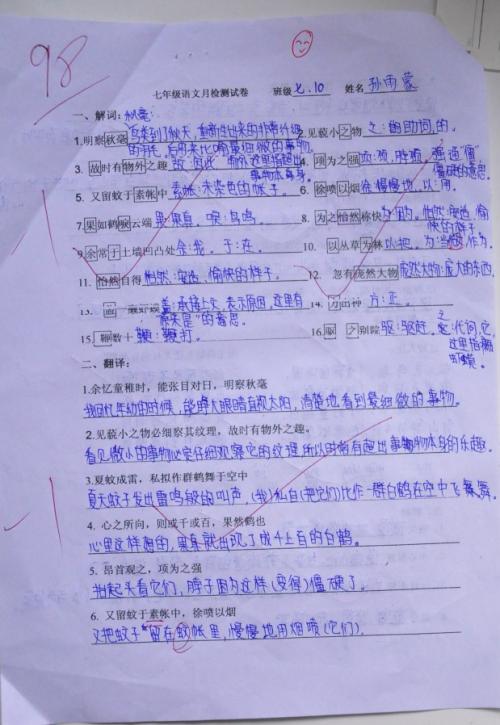 98
七年级语文月检测试卷 班级 七.10 姓名 孙雨蒙
一、解词:秋毫:
1.明察秋毫 鸟类到了秋天,重新生出来的非常纤细
的羽毛。后用来比喻最细微的事物。 2.见藐小之物 之:助词,的。
3. 故时有物外之趣 故:因此 物外:这里指超出
事物本身。 4. 项为之强 项:颈,脖颈。强:通“僵”
僵硬的意思。
5. 又留蚊于素帐中 素帐:未染色的帐子。 6. 徐喷以烟 徐:慢慢地。以:用。
7.果如鹤唳云端 果:果真。唳:鸟鸣。 8. 为之怡然称快 怡然:安适、愉
快的样子
9.余常于土墙凹凸处 余:我。于:在。 10. 以丛草为林 以:把。为:当做
11. 怡然自得 怡然:安适、愉快的样子。 12. 忽有庞然大物 庞然大物:庞大的东西。
盖:承接上文,表示原因,这里有
“原来是”的意思。 14. 方出神 方:正。
15. 鞭数十 鞭:鞭打。 16. 驱之别院 驱:驱赶。之:代词,它,
这里指癞
二、翻译:
1.余忆童稚时,能张目对日,明察秋毫
我回忆年幼的时候,能睁大眼睛直视太阳,清楚地看到最细微的事物。
2.见藐小之物必细察其纹理,故时有物外之趣。
看见微小的事物必定仔细观察它的纹理,所以时常有超出事物本身的乐趣。
3.夏蚊成雷,私拟作群鹤舞于空中
夏天蚊子发出雷鸣般的叫声,(我)私自(把它们)比作一群白鹤在空中飞舞。
4. 心之所向,则或千或百,果然鹤也
心里这样想的,果真就出现了成千上百的白鹤。
5. 昂首观之,项为之强
抬起头看它们,脖子因为这样(变得)僵硬了。
6. 又留蚊于素帐中,徐喷以烟
又把蚊子留在蚊帐里,慢慢地用烟喷(它们)。